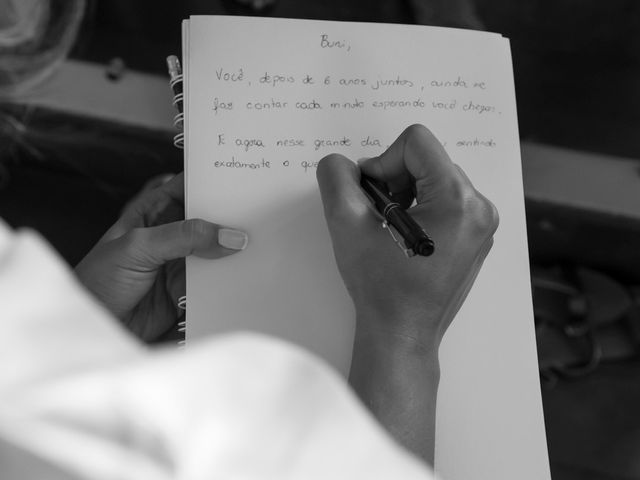 Buni,
Você, depois de 6 anos juntos, ainda me
faz contar cada minuto esperando você chegar.
E agora nesse grande dia, sentindo
exatamente o que